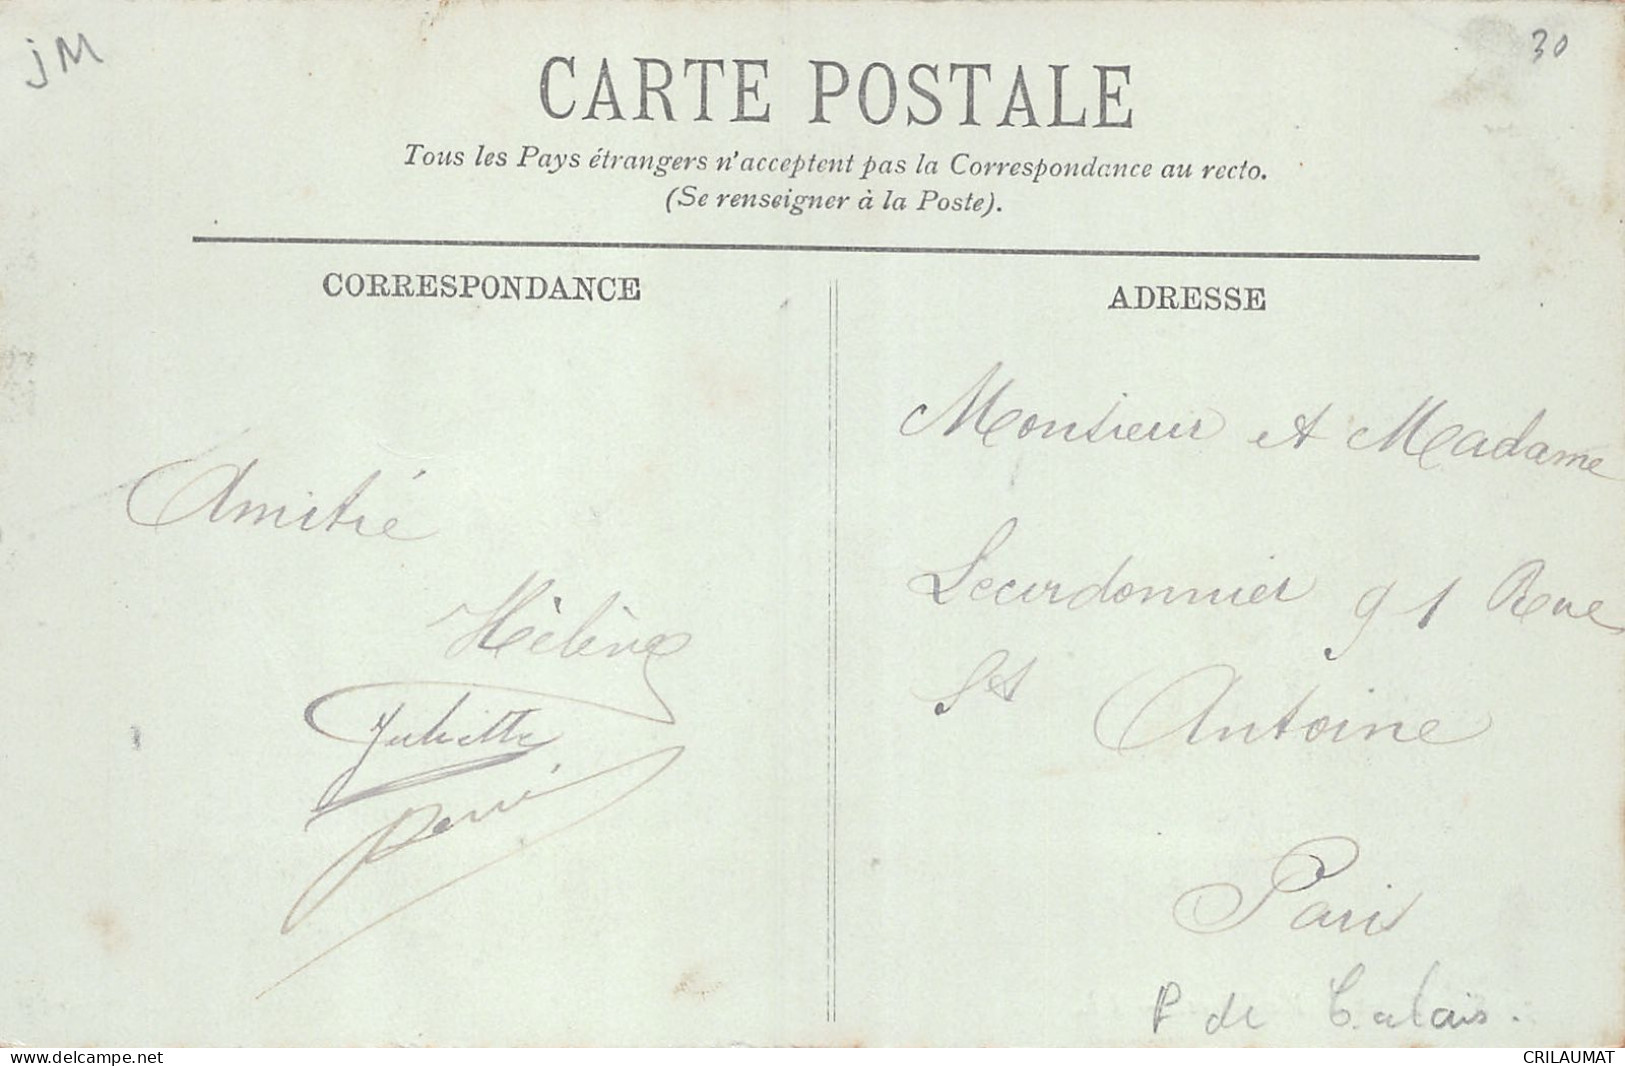 jM
30
CARTE POSTALE
Tous les Pays étrangers n'acceptent pas la Correspondance au recto.
(Se renseigner à la Poste).
CORRESPONDANCE
Amitié
Hélène
Juliette
ADRESSE
Monsieur et Madame
Lecurdonnier 91 Rue
St Antoine
Paris
P de Calais.
CRILAUMAT